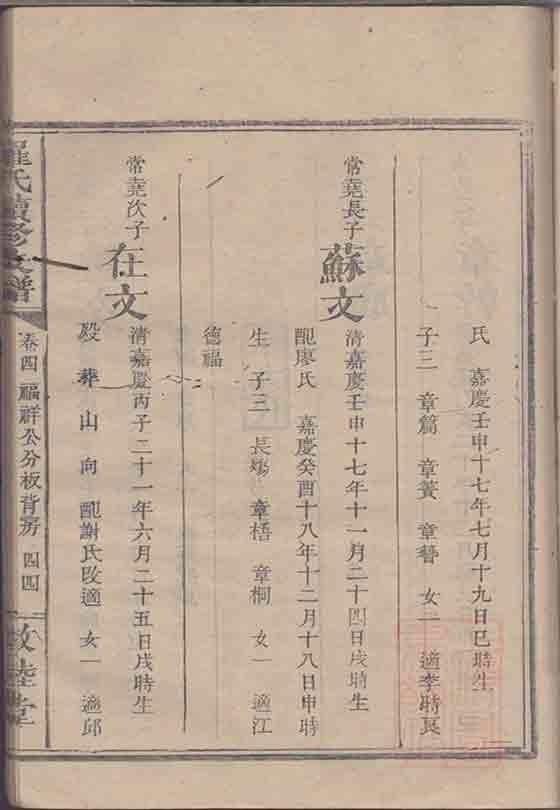 氏 嘉慶壬申十七年七月十九日巳時生
子三 章篇 章簧 章 女一 適李時
常堯長子
蘇文
清嘉慶壬申十七年十一月二十四日戌時生
配廖氏 嘉慶癸酉十八年十二月十八日申時
生 子三 長 章梧 章桐 女一 適江
德福
常堯次子
在文
清嘉慶丙子二十一年六月二十五日戌時生
殁 葬 山 向 配謝氏改適 女一 適邱
羅氏續修支譜
卷四 福祥公分板背房 四四
敦睦堂